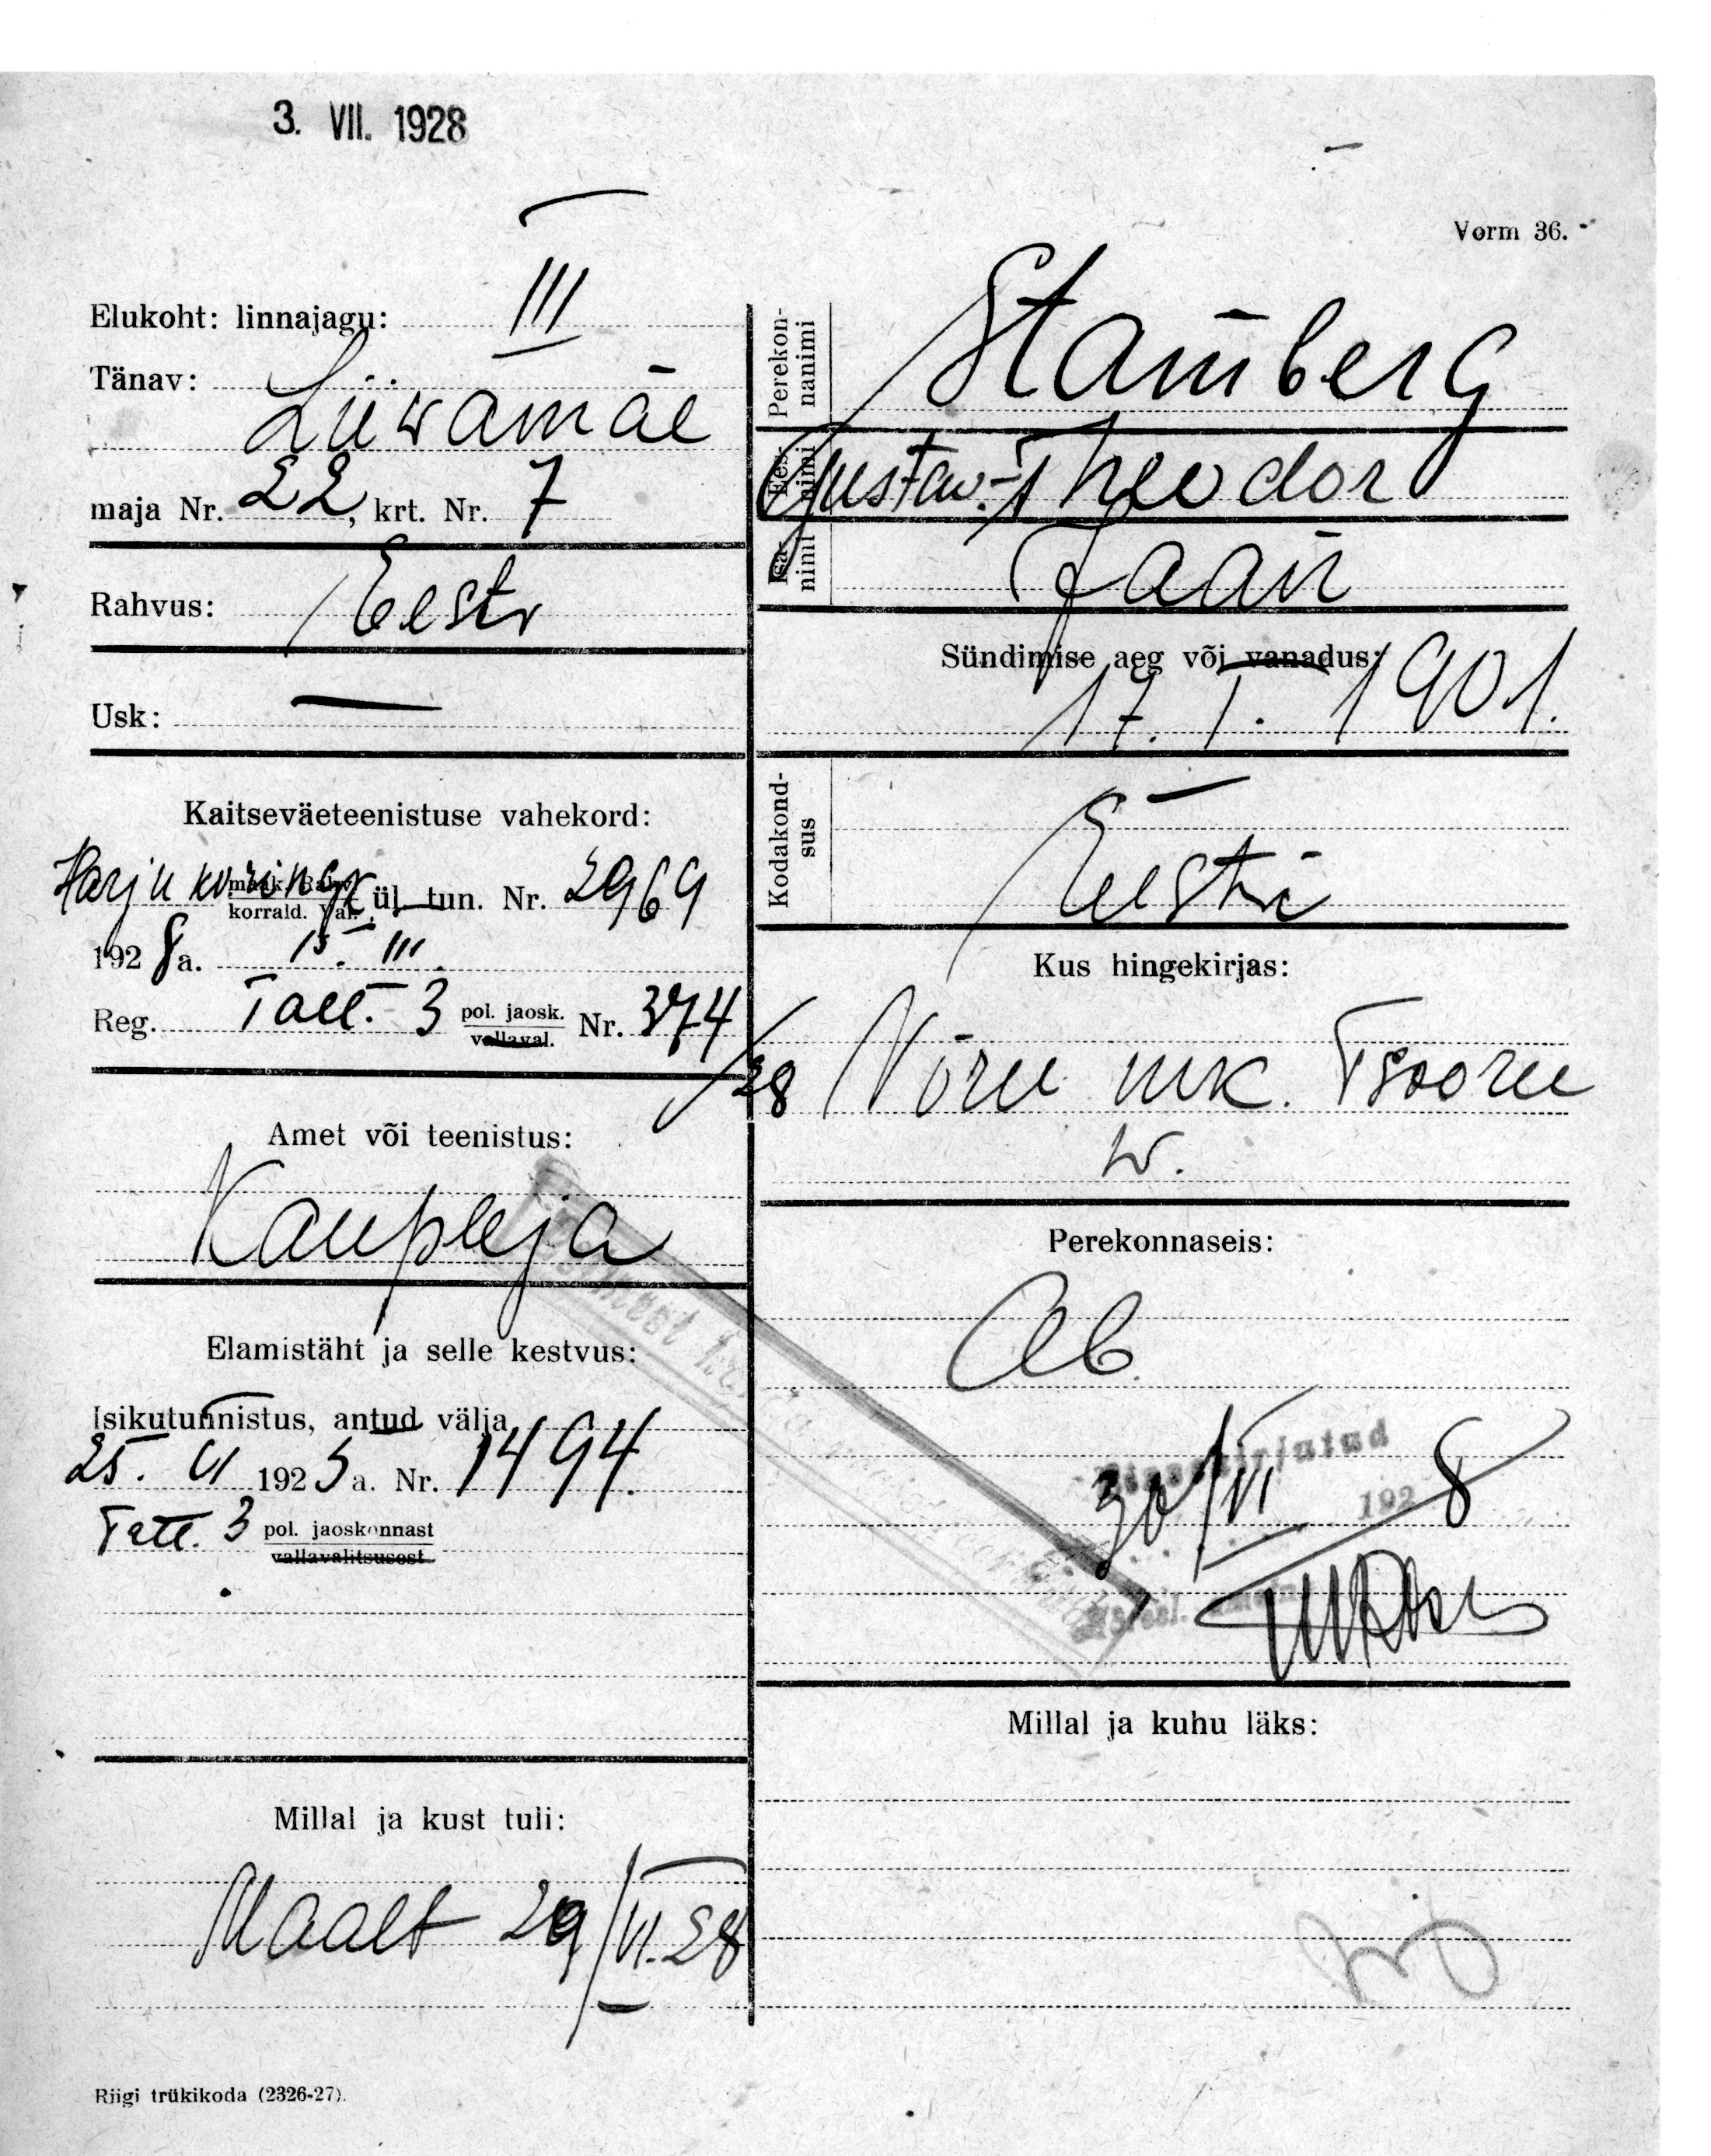 3. VII. 1928
Vorm 36.
Elukoht: linnajagu: III
Tänav:
Liiwamäe
maja Nr. 22, krt. Nr. 7
Rahvus: Eesti
Usk: —
Kaitseväeteenistuse vahekord:
Harju korrald. Val. ül. tun. Nr. 2969
1928 a. 15. III.
Reg. Tall. 3 pol. jaosk. vallaval. Nr. 374/28
Amet või teenistus:
Kaupleja
Elamistäht ja selle kestvus:
Isikutunnistus, antud välja
25. VI 1925 a. Nr. 1494.
Tall. 3 pol. jaoskonnast
vallavalitsusest
Millal ja kust tuli:
Maalt 29/VI.28
Riigi trükikoda (2326-27).
Perekonnanimi Stamberg
Eesnimi Gustaw-Theodor
Isanimi Jaan
Sündimise aeg või vanadus:
17. I. 1901.
Kodakondsus Eesti
Kus hingekirjas:
Võru mk. Tsooru
w.
Perekonnaseis:
Ab.
Sissekirjutud
30/VI 1928
Millal ja kuhu läks: